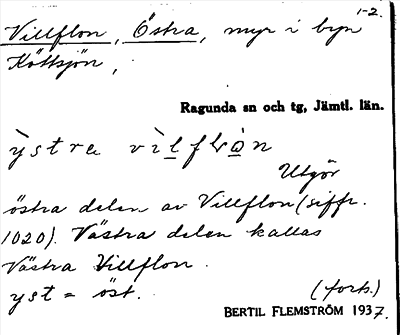 1-2.
Villflon, Östra, myr i byn
Köttsjön,
Ragunda sn och tg, Jämtl. län.
ỳstra vìlflòn
Utgör
östra delen av Villflon (siffr.
1020). Västra delen kallas
Västra Villflon.
yst = öst. (forts.)
BERTIL FLEMSTRÖM 1937.